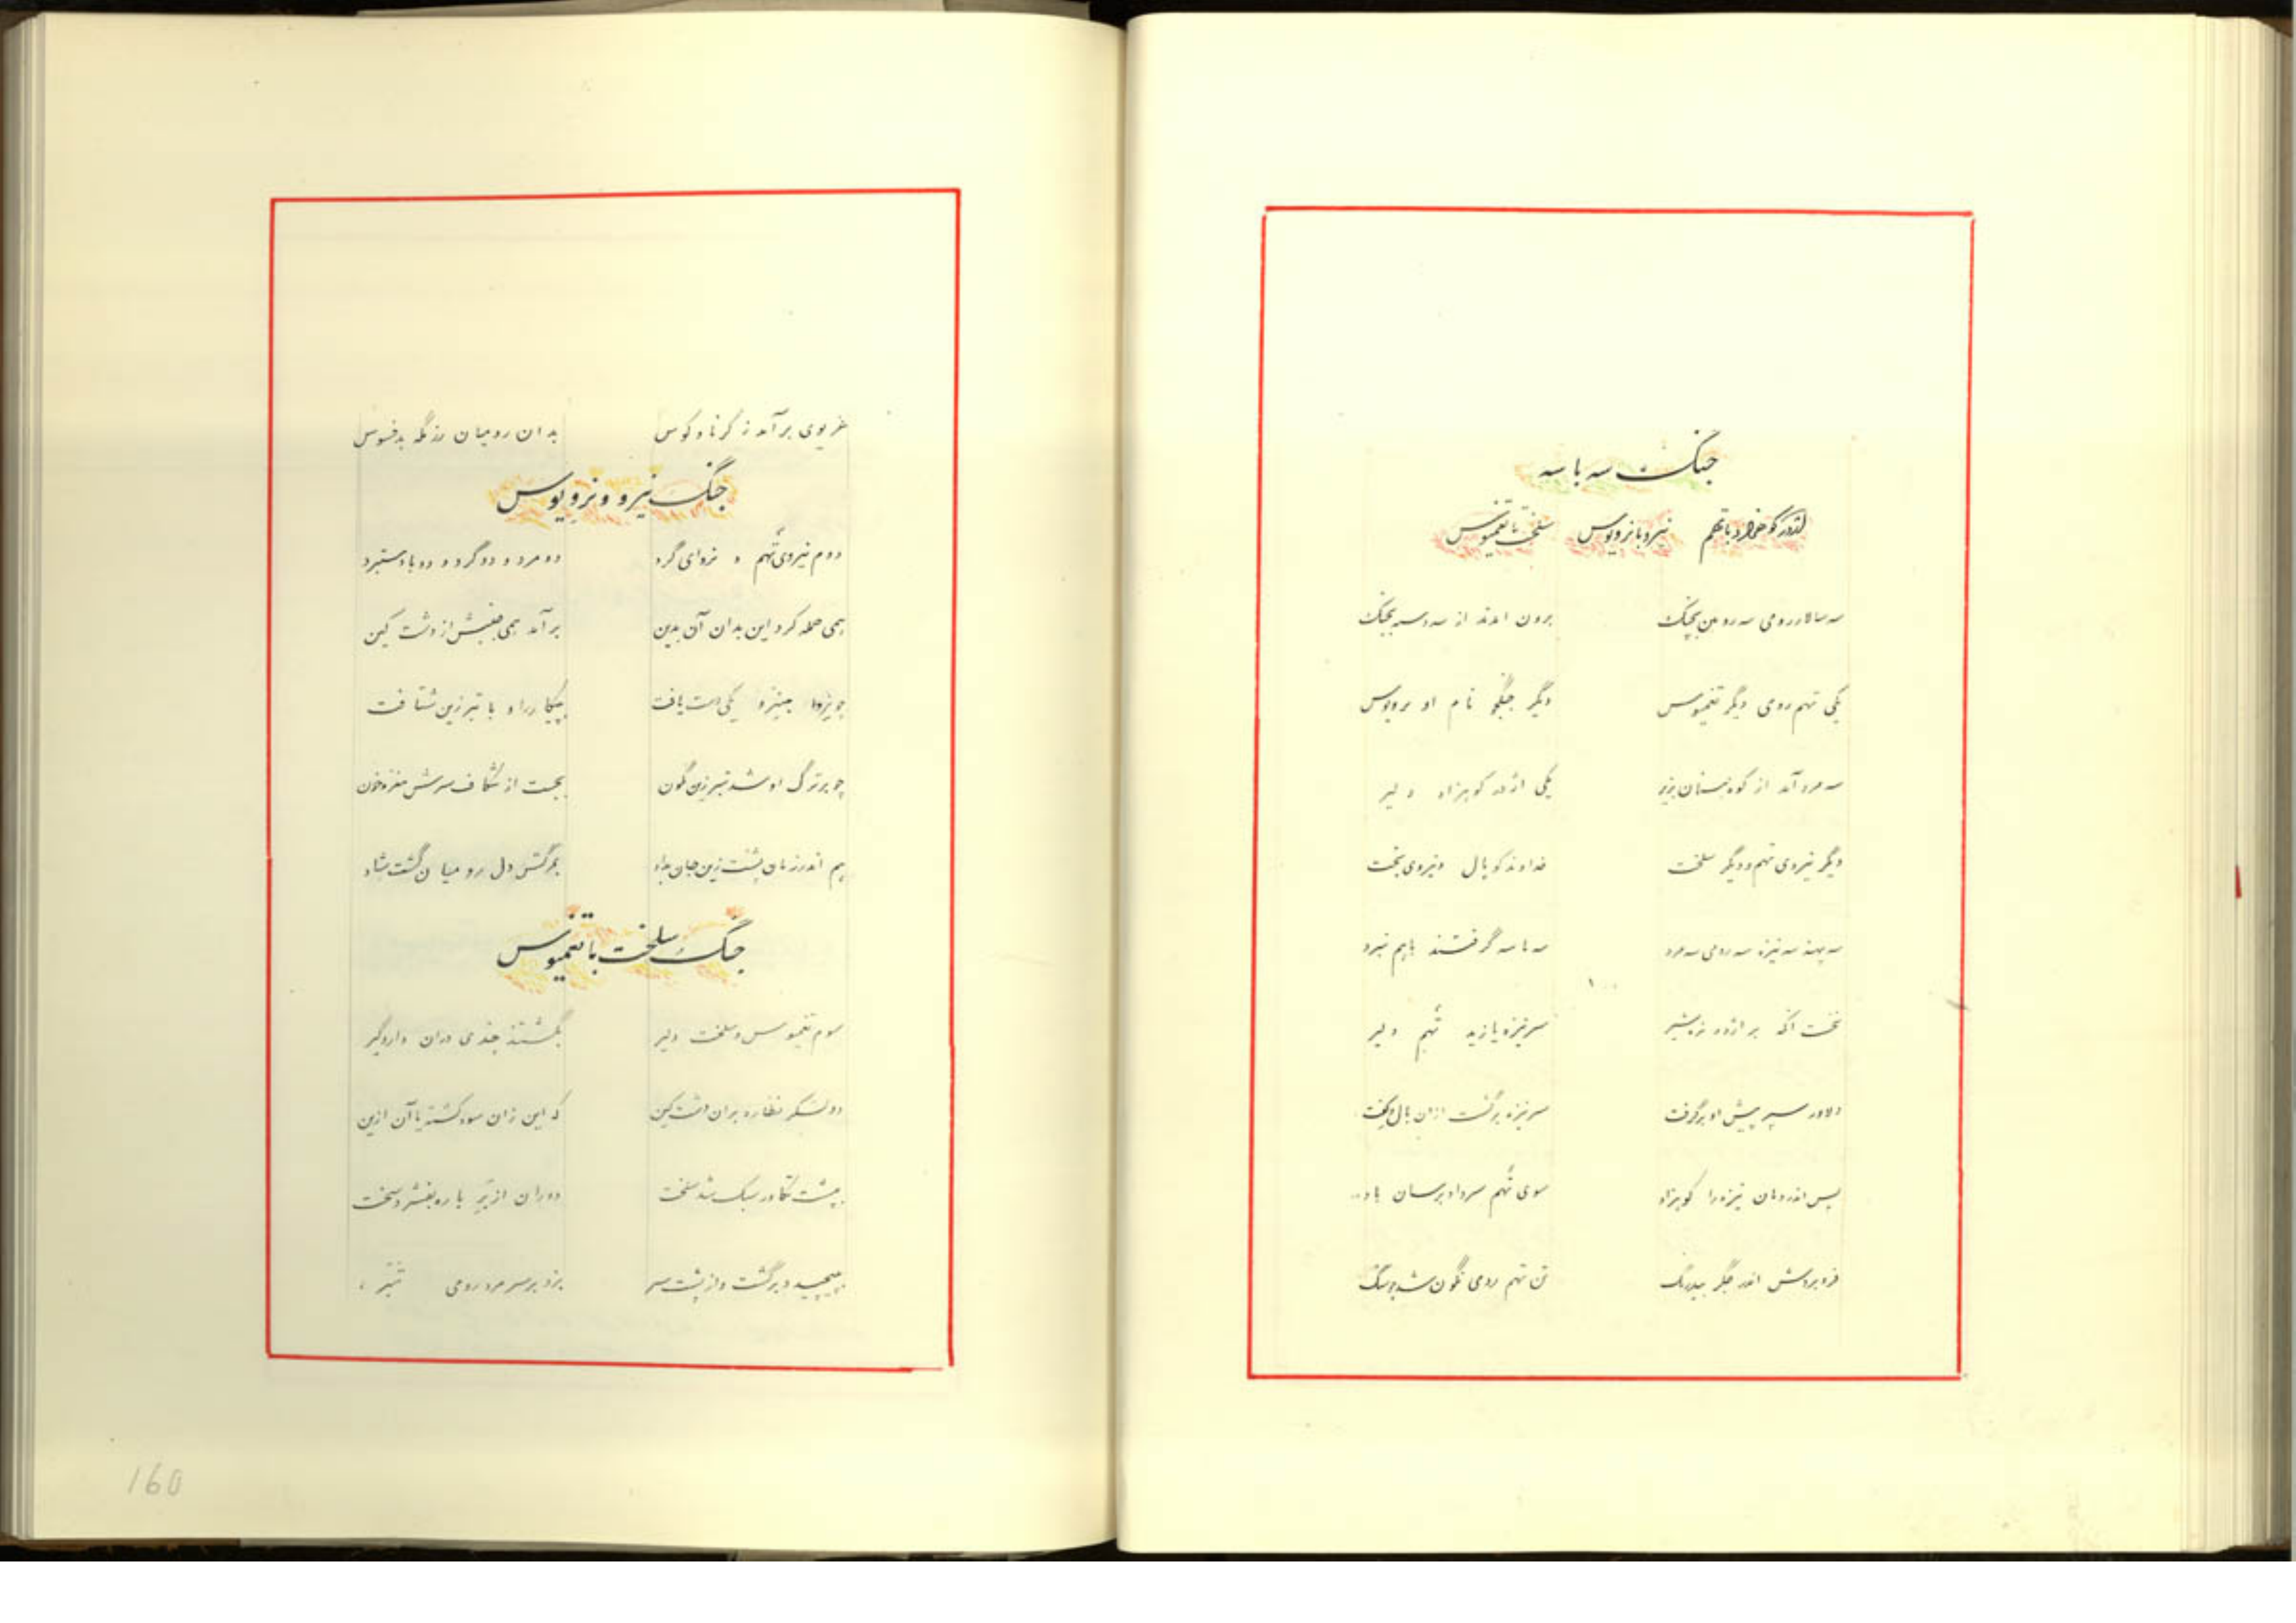 جنگ سه با سه
اژدر کوهزاد با تهم نیرو با نرویوس سلخت با تغمیوس
سه سالار رومی سه رویین بجنگ برون آمدند از سه دسته بجنگ
یکی تهم رومی دیگر تغمیوس دیگر جنگجو نام او نرویوس
سه مرد آمد از کوهستان بزیر یکی اژدر کوهزاد دلیر
دیگر نیروی تهم و دیگر سلخت خداوند کوپال و نیروی بخت
سه نیزه سه رومی سه مرد سه با سه گرفتند باهم نبرد
نخست آنکه بر اژدر نره شیر سر نیزه یازید تهم دلیر
دلاور سپر پیش او برگرفت سر نیزه برگشت ازان یال
پس اندر دمان نیزه را کوهزاد سوی تهم سر داد برسان باد
فرو بردش اندر جگر بیدرنگ تن تهم رومی نگون شد
غریوی برآمد ز کرنا و کوس بدان رومیان رزمگه بد فسوس
جنگ نیرو و نرویوس
دوم نیروی تهم و نروای گرد دو مرد و دو گرد و دو با دستبرد
همی حمله کرد این بدان آن بدین برآمد همی جنبش از دشت کین
چو یکی دست یافت به پیکار او با تبرزین شتافت
چو بر ترگ او شد تبرزن نگون بجست از شکاف سرش مغز و خون
هم اندر زمان پشت زین جان بداد بمرگش دل رومیان گشت شاد
جنگ سلخت با تغمیوس
سوم تغمیوس و سلخت دلیر بگشتند چندی دران داروگیر
دو لشکر نظاره بران دشت کین که این زان سو کشته یا آن ازین
پشت تکاور سبک شد سلخت دو ران از بر باره بفشرد سخت
بپیچید و برگشت و از پشت سر بزد بر سر مرد رومی تبر
160